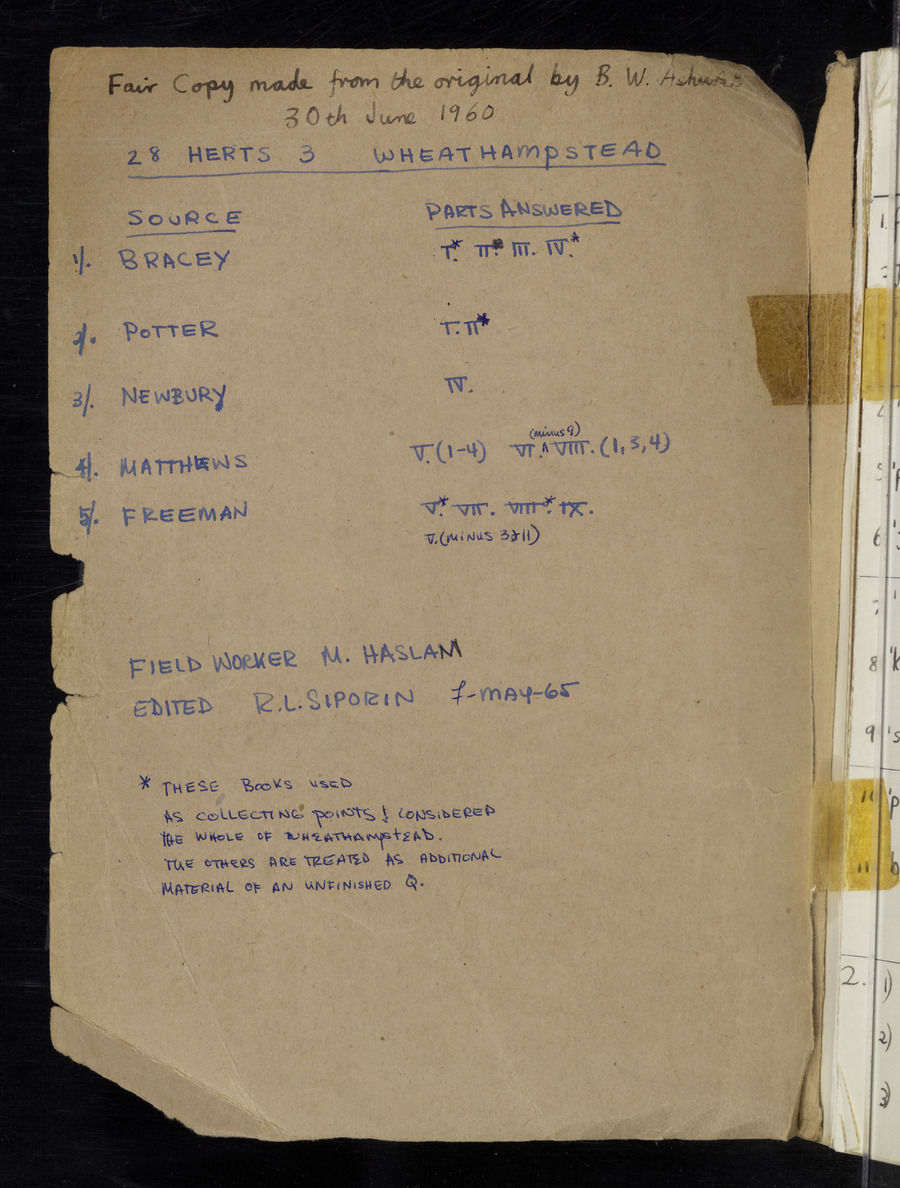 Fair Copy made from the original by B. W.
30th June 1960
28 HERTS 3 WHEATHAMPSTEAD
SOURCE PARTS ANSWERED
1/. BRACEY I.* II.* III. IV.*
2/. POTTER I. II*
3/. NEWBURY IV.
4/. MATTHEWS V.(1-4) VI.^(minus 9) VIII.(1,3,4)
5/. FREEMAN V.* VII. VIII.* IX.
V.(MINUS 3 & 11)
FIELD WORKER M. HASLAM
EDITED R.L. SIPORIN 7-MAY-65
* THESE BOOKS USED
AS COLLECTING POINTS & CONSIDERED
THE WHOLE OF WHEATHAMPSTEAD.
THE OTHERS ARE TREATED AS ADDITIONAL
MATERIAL OF AN UNFINISHED Q.
1.
6
7.
8 'k
9 's
10 'p
11 'b
2. 1)
2)
3)